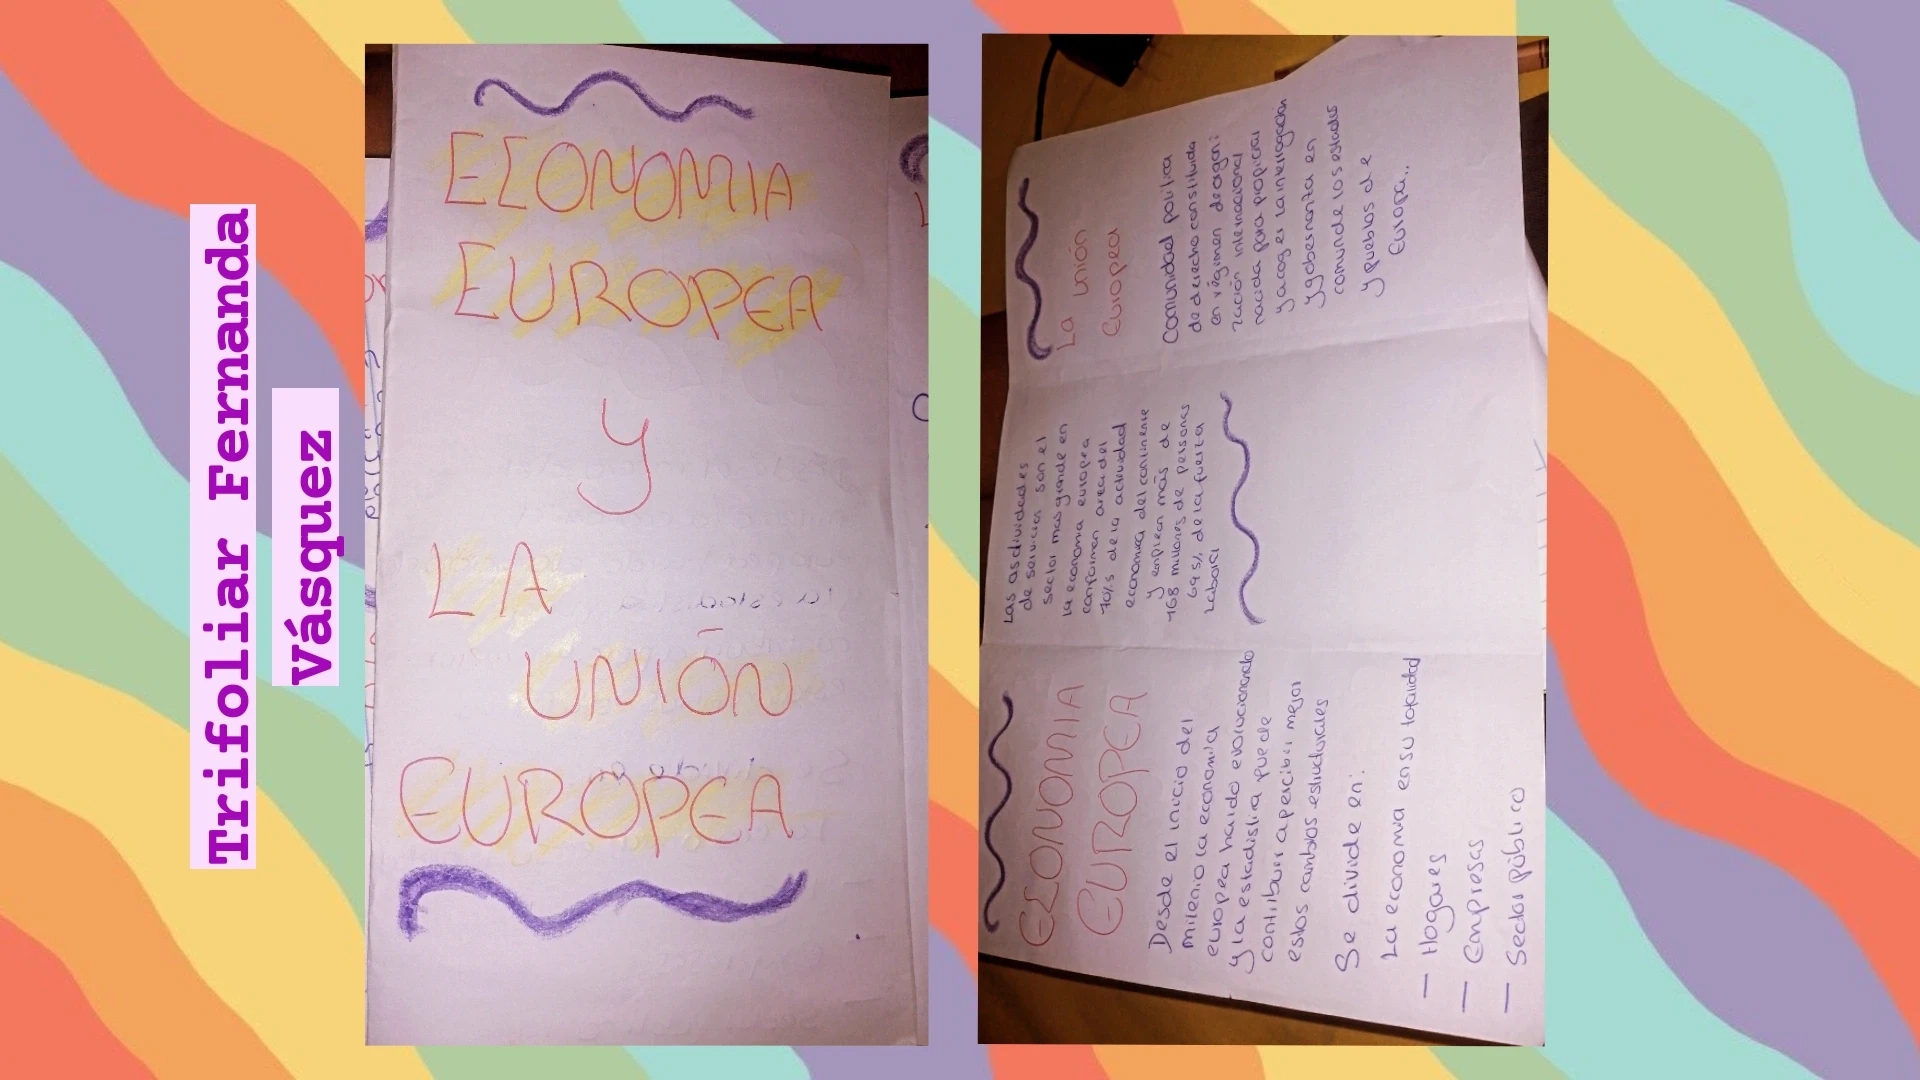 Trifoliar Fernanda
Vásquez
ECONOMIA
EUROPEA
Y
LA
UNIÓN
EUROPEA
ECONOMIA
EUROPEA
Desde el inicio del
milenio la economia
europea ha ido evolucionando
y la estadistica puede
contribuir a percibir mejor
estos cambios estructurales
Se divide en:
La economia en su totalidad
— Hogares
— Empresas
— Sector público
Las actividades
de servicios son el
sector mas grande en
la economia europea
conforman area del
70% de la actividad
economica del continente
y emplean más de
168 millones de personas
69 5% de la fuerza
Laboral
La unión
Europea
Comunidad politica
de derecho constituida
en régimen de organi
zación internacional
nacida para propiciar
y acoger la integración
y gobernanza en
comun de los estados
y pueblos de
Europa..